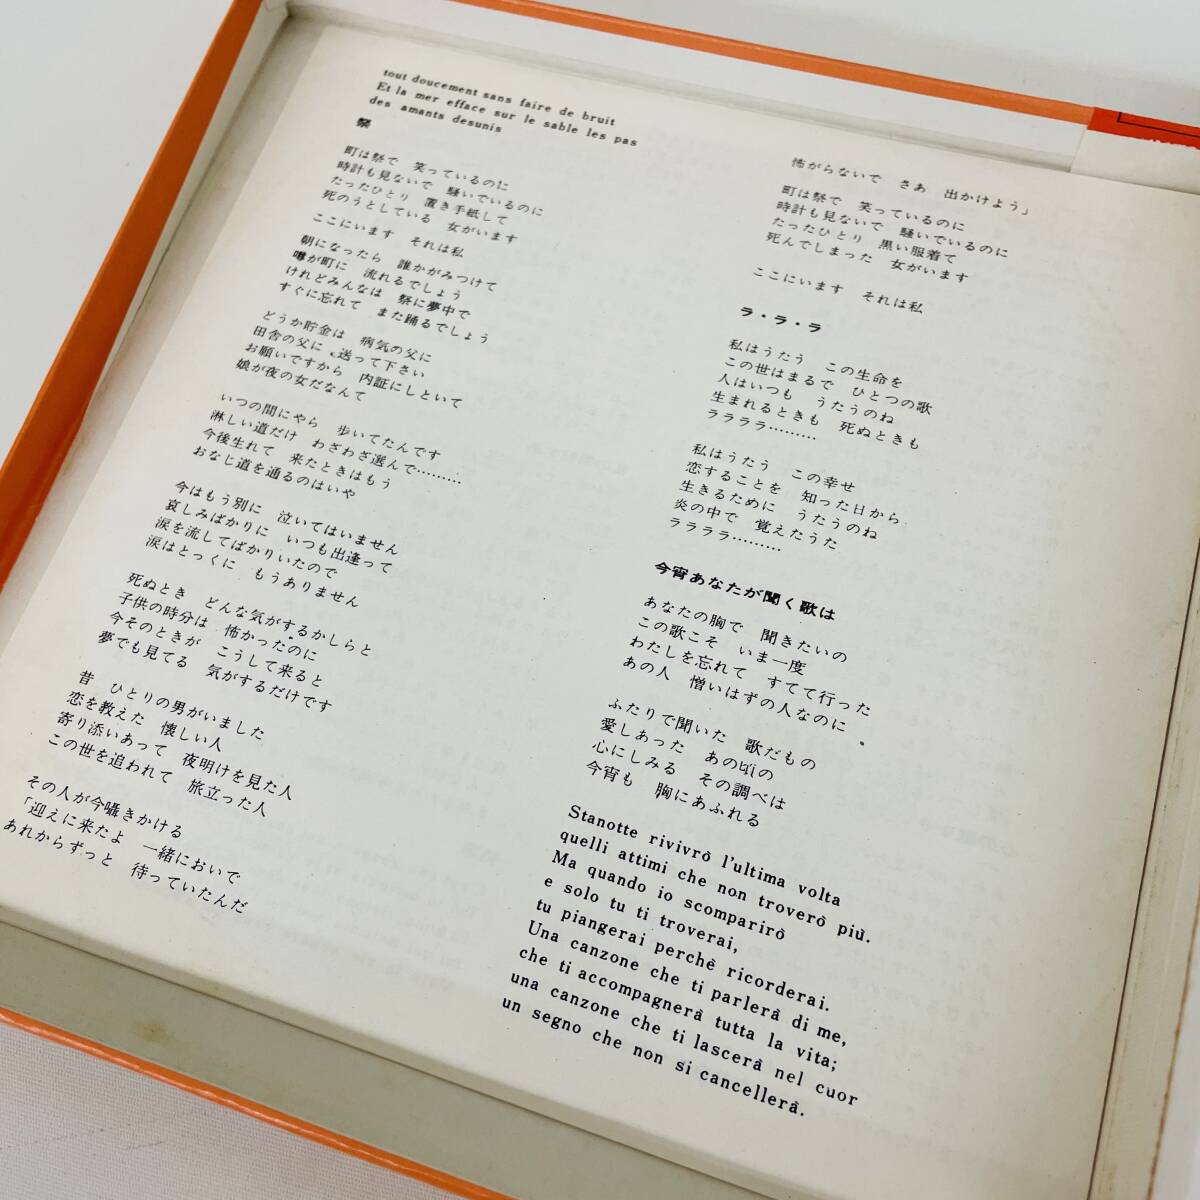 tout doucement sans faire de bruit
Et la mer efface sur le sable les pas
des amants desunis
祭
町は祭で　笑っているのに
時計も見ないで　騒いでいるのに
たったひとり　置き手紙して
死のうとしている　女がいます
ここにいます　それは私
朝になったら　誰かがみつけて
噂が町に　流れるでしょう
けれどみんなは　祭に夢中で
すぐに忘れて　また踊るでしょう
どうか貯金は　病気の父に
田舎の父に　送って下さい
お願いですから　内証にしといて
娘が夜の女だなんて
いつの間にやら　歩いてたんです
淋しい道だけ　わざわざ選んで………
今後生れて　来たときはもう
おなじ道を通るのはいや
今はもう別に　泣いてはいません
哀しみばかりに　いつも出逢って
涙を流してばかりいたので
涙はとっくに　もうありません
死ぬとき　どんな気がするかしらと
子供の時分は　怖かったのに
今そのときが　こうして来ると
夢でも見てる　気がするだけです
昔　ひとりの男がいました
恋を教えた　懐しい人
寄り添いあって　夜明けを見た人
この世を追われて　旅立った人
その人が今囁きかける
「迎えに来たよ　一緒においで
あれからずっと　待っていたんだ
怖がらないで　さあ　出かけよう」
町は祭で　笑っているのに
時計も見ないで　騒いでいるのに
たったひとり　黒い服着て
死んでしまった　女がいます
ここにいます　それは私
ラ・ラ・ラ
私はうたう　この生命を
この世はまるで　ひとつの歌
人はいつも　うたうのね
生まれるときも　死ぬときも
ララララ………
私はうたう　この幸せ
恋することを　知った日から
生きるために　うたうのね
炎の中で　覚えたうた
ララララ………
今宵あなたが聞く歌は
あなたの胸で　聞きたいの
この歌こそ　いま一度
わたしを忘れて　すてて行った
あの人　憎いはずの人なのに
ふたりで聞いた　歌だもの
愛しあった　あの頃の
心にしみる　その調べは
今宵も　胸にあふれる
Stanotte rivivrò l'ultima volta
quelli attimi che non troverò più.
Ma quando io scomparirò
e solo tu ti troverai,
tu piangerai perchè ricorderai.
Una canzone che ti parlerà di me,
che ti accompagnerà tutta la vita;
una canzone che ti lascerà nel cuor
un segno che non si cancellerà.